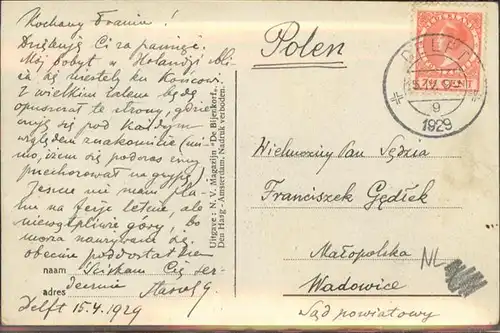 Kochany Franiu!
Dziękuję Ci za pamięć.
Mój pobyt w Holandji zbli
ża się niestety ku końcowi.
Z wielkim żalem będę
opuszczał te strony, gdzie
czuję się pod każdym
względem znakomicie (mi-
mo, iżem się podczas zimy
przechorował na grypę).
Jeszcze nie mam pla-
nu na ferje letnie, ale
niewątpliwie góry, bo
morza
obecnie pod dostatkiem
naam Ściskam Cię ser-
adres decznie
Delft 15.4.1929
Uitgave: N. V. Magazijn "De Bijenkorf",
Den Haag - Amsterdam, Nadruk verboden.
Polen
NEDERLAND
DELFT
1929
Wielmożny Pan Sędzia
Franciszek Gędłek
Małopolska
NL
Wadowice
Sąd powiatowy